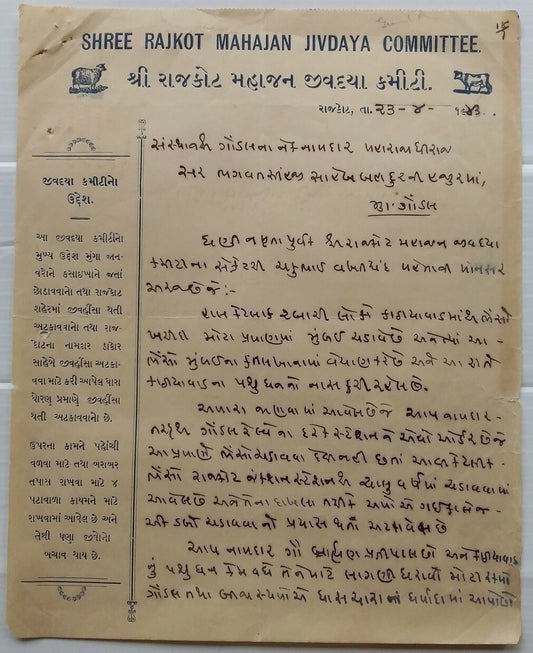 SHREE RAJKOT MAHAJAN JIVDAYA COMMITTEE.
શ્રી રાજકોટ મહાજન જીવદયા કમીટી.
રાજકોટ, તા. ૨૩-૪-૧૯૪૩.
જીવદયા કમીટીનો
ઉદ્દેશ.
આ જીવદયા કમીટીનો
મુખ્ય ઉદ્દેશ મુંગા જન-
વરોને કસાઇખાને જતાં
છોડાવવાનો તથા રાજકોટ
શહેરમાં જીવહીંસા થતી
અટકાવવાનો તથા રાજ-
કોટના નામદાર ઠાકોર
સાહેબે જીવહીંસા અટકા-
વવા માટે કરી આપેલ ધારા
ધોરણ પ્રમાણે જીવહીંસા
થતી અટકાવવાનો છે.
ઉપરના કામને પહોંચી
વળવા માટે તથા બરાબર
તપાસ રાખવા માટે ૪
પટાવાળા કાયમને માટે
રાખવામાં આવેલ છે અને
તેથી ઘણા જીવોનો
બચાવ થાય છે.
સંસ્થાનશ્રી ગોંડલના નેક નામદાર મહારાજાધીરાજ
સર ભગવતસીંહજી સાહેબ બહાદુરની હજુરમાં,
મુ. ગોંડલ
ઘણી નમ્રતા પુર્વક શ્રી રાજકોટ મહાજન જીવદયા
કમીટીના સેક્રેટરી વખતચંદ
અરજ છેજે :-
કેટલાક રબારી લોકો કાઠીયાવાડમાંથી ભેંસો
ખરીદી મોટા પ્રમાણમાં મુંબઇ ચડાવેછે અને ત્યાં આ
ભેંસો મુંબઇના કતલખાનામાં વેચાણ કરેછે અને આ રીતે
કાઠીયાવાડના પશુધનનો નાશ કરી રહેલ છે.
અમારા જાણવામાં આવેલછેજે આપ નામદાર-
તરફથી ગોંડલ રેલ્વેના દરેક સ્ટેશનને એવો ઓર્ડર છેજે
આ પ્રમાણે ભેંસો ચડાવવા દેવી નહી છતાં
ભેંસો રાજકોટ જંકશન સ્ટેશનથી ચાલુ વર્ષમાં ચડાવવામાં
આવેલછે અને તેના દાખલા તરીકે
ડબો ચડાવવાનો પ્રયાસ થતાં અટકાવેલ છે
આપ નામદાર ગૌ બ્રાહ્મણ પ્રતીપાલ છો અને કાઠીયાવાડ
નું પશુધન કેમ વધે તેને માટે લાગણી ધરાવો
ગોંડલ તથા ઘાસચારાનાં